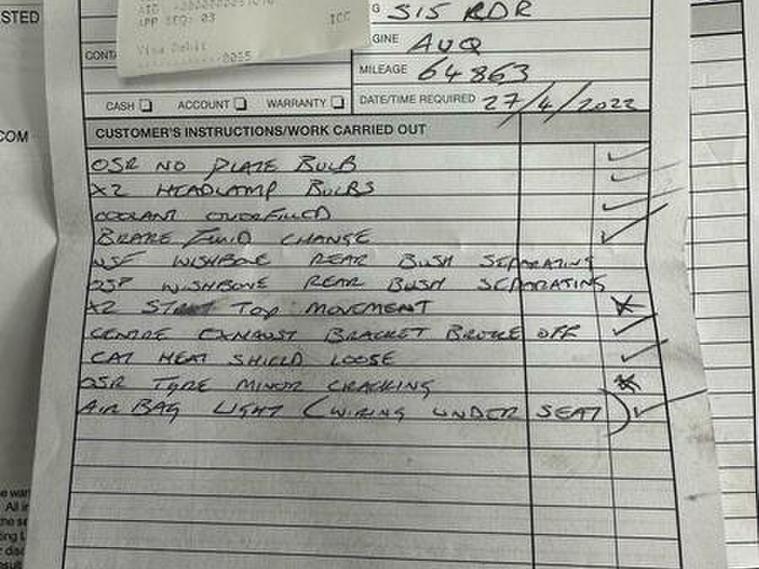 STED
AID
APP SEQ: 03
ICC
Visa Debit
G S15 RDR
GINE AUQ
CONTA
MILEAGE 64863
CASH ACCOUNT WARRANTY DATE/TIME REQUIRED 27/4/2022
COM
CUSTOMER'S INSTRUCTIONS/WORK CARRIED OUT
OSR NO PLATE BULB
X2 HEADLAMP BULBS
COOLANT OVERFILLED
BRAKE FLUID CHANGE
NSF WISHBONE REAR BUSH SEPARATING
OSF WISHBONE REAR BUSH SEPARATING
X2 STRUT TOP MOVEMENT
CENTRE EXHAUST BRACKET BROKE OFF
CAT HEAT SHIELD LOOSE
OSR TYRE MINOR CRACKING
AIR BAG LIGHT (WIRING UNDER SEAT)
e war
All i
the se
ing L
r disc
result